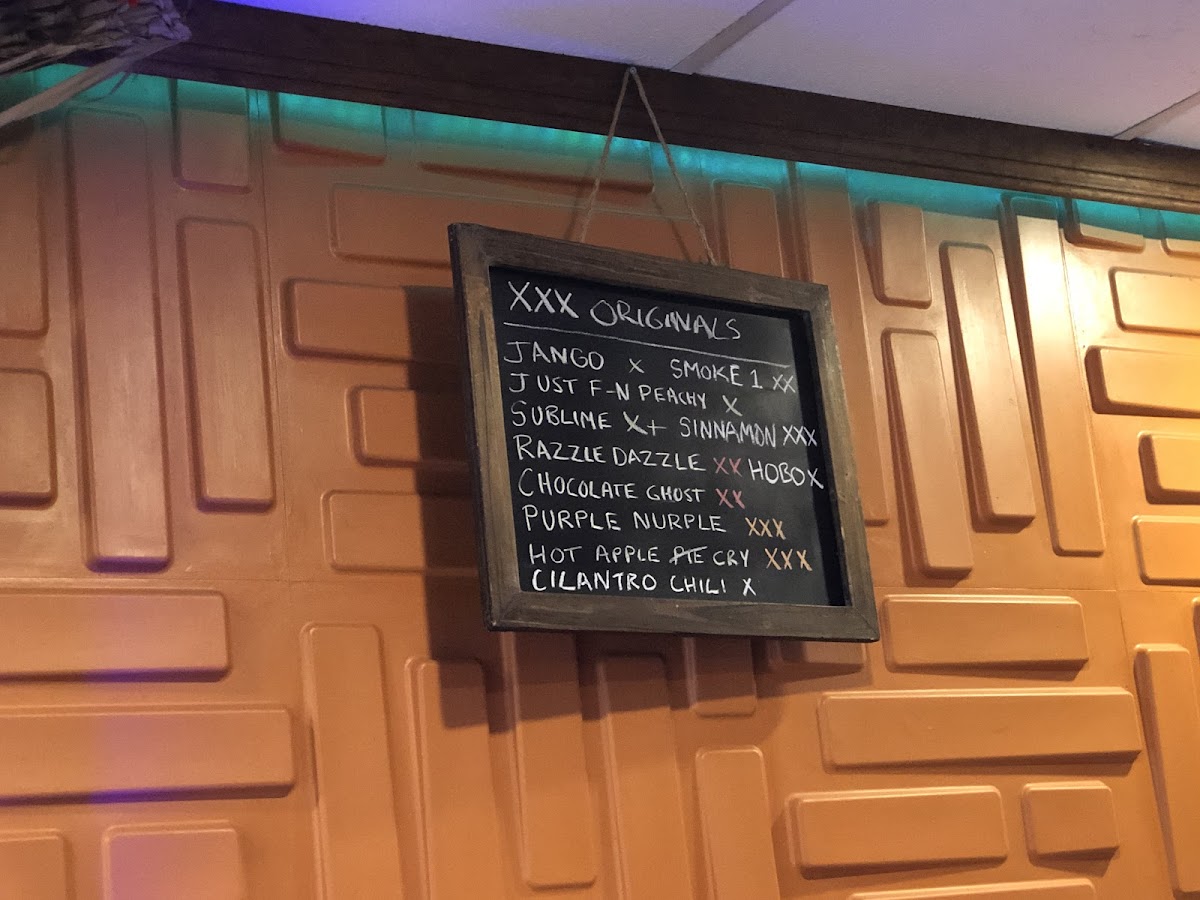 XXX ORIGINALS
JANGO X SMOKE 1 XX
JUST F-N PEACHY X
SUBLIME X+ SINNAMON XXX
RAZZLE DAZZLE XX HOBO X
CHOCOLATE GHOST XX
PURPLE NURPLE XXX
HOT APPLE PIE CRY XXX
CILANTRO CHILI X